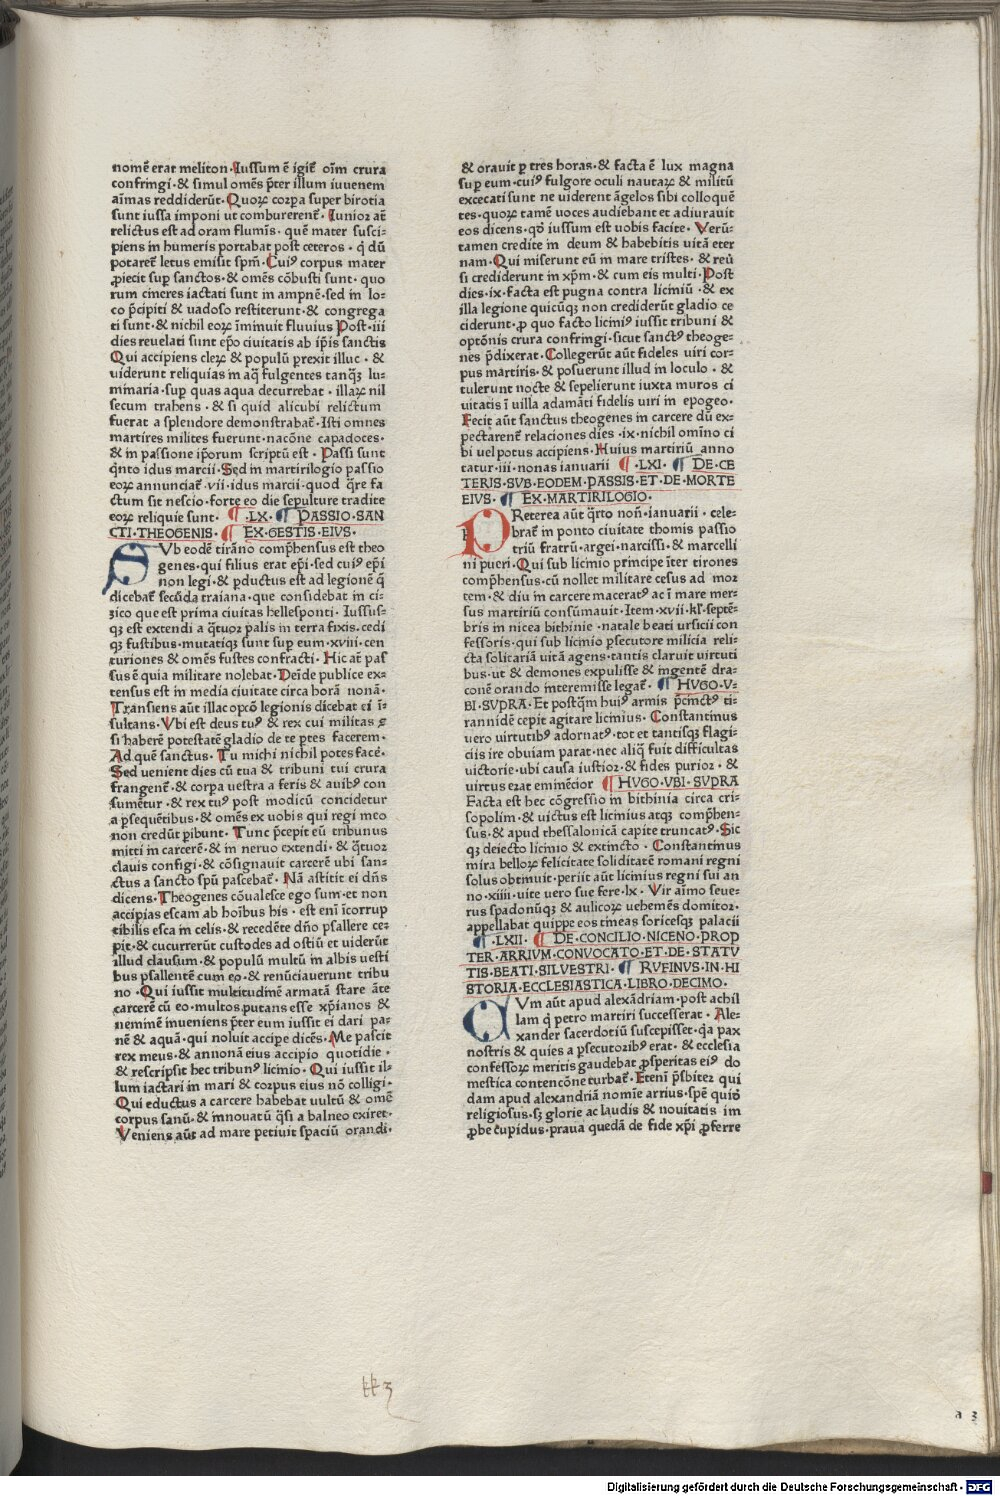 nomē erat meliton·Iussum ē igit̄ oīm crura
confringi·& simul omēs p̄ter illum iuuenem
aīmas reddiderūt·Quoꝝ corpa super birotia
sunt iussa imponi ut comburerent̄·Iunior at̄
relictus est ad oram flumīs·quē mater susci-
piens in humeris portabat post ceteros·q̄ dū
potaret̄ letus emisit spm̄·Cuiꝰ corpus mater
ꝓiecit suꝑ sanctos·& omēs cōbusti sunt·quo
rum cineres iactati sunt in ampnē·sed in lo-
co p̄cipiti & uadoso restiterunt·& congrega
ti sunt·& nichil eoꝝ īminuit fluuius Post·iii
dies reuelati sunt ep̄o ciuitatis ab ip̄is sanctis
Qui accipiens cleꝝ & populū ꝑrexit illuc·&
uiderunt reliquias in aq̄ fulgentes tanqꝫ lu-
minaria·suꝑ quas aqua decurrebat·illaꝝ nil
secum trahens·& si quid alicubi relictum
fuerat a splendore demonstrabat̄·Isti omnes
martires milites fuerunt·nacōne capadoces·
& in passione ip̄orum scriptū est·Passi sunt
q̄nto idus marcii·Sed in martirilogio passio
eoꝝ annunciat̄·vii·idus marcii·quod q̄re fa
ctum sit nescio·forte eo die sepulture tradite
eoꝝ reliquie sunt· ¶·LX·¶ PASSIO·SAN
CTI·THEOGENIS·¶ EX·GESTIS·EIVS·
SVb eodē tirāno comp̄hensus est theo
genes·qui filius erat ep̄i·sed cuiꝰ ep̄i
non legi·& ꝑductus est ad legionē q̄
dicebat̄ secūda traiana·que considebat in ci-
zico que est prima ciuitas hellesponti·Iussus-
qꝫ est extendi a q̄tuoꝛ palis in terra fixis·cedi
qꝫ fustibus·mutatiqꝫ sunt suꝑ eum·xviii·cen
turiones & omēs fustes confracti·Hic at̄ pas
sus ē quia militare nolebat·Deīde publice ex-
tensus est in media ciuitate circa horā nonā·
Transiens aūt illac opcō legionis dicebat ei ī-
sultans·Vbi est deus tuꝰ & rex cui militas ꝫ
si haberē potestatē gladio de te ꝑtes facerem·
Ad quē sanctus·Tu michi nichil potes facē·
Sed uenient dies cū tua & tribuni tui crura
frangent̄·& corpa uestra a feris & auibꝰ con
sumētur·& rex tuꝰ post modicū concidetur
a ꝑsequētibus·& omēs ex uobis qui regi meo
non credūt ꝑibunt·Tunc p̄cepit eū tribunus
mitti in carcerē·& in neruo extendi·& q̄tuoꝛ
clauis configi·& cōsignauit carcerē ubi san-
ctus a sancto spū pascebat̄·Nā astitit ei dn̄s
dicens·Theogenes cōualesce ego sum·et non
accipias escam ab hoībus his·est enī īcorrup
tibilis esca in celis·& recedēte dn̄o psallere ce-
pit·& cucurrerūt custodes ad ostiū et uiderūt
illud clausum·& populū multū in albis uesti
bus psallentē cum eo·& renūciauerunt tribu
no·Qui iussit multitudinē armatā stare āte
carcerē cū eo·multos putans esse xp̄ianos &
neminē inueniens p̄ter eum iussit ei dari pa-
nē & aquā·qui noluit accipe dicēs·Me pascit
rex meus·& annonā eius accipio quotidie·
& rescripsit hec tribunꝰ licinio·Qui iussit il-
lum iactari in mari & corpus eius nō colligi·
Qui eductus a carcere habebat uultū & omē
corpus sanū·& innouatū q̄si a balneo exiret·
Veniens aūt ad mare petiuit spaciū orandi·
& orauit ꝑ tres horas·& facta ē lux magna
suꝑ eum·cuiꝰ fulgore oculi nautaꝝ & militū
excecati sunt ne uiderent āgelos sibi colloquē
tes·quoꝝ tamē uoces audiebant et adiurauit
eos dicens·qđ iussum est uobis facite·Verū-
tamen credite in deum & habebitis uitā eter
nam·Qui miserunt eū in mare tristes·& reūsi
si crediderunt in xp̄m·& cum eis multi·Post
dies·ix·facta est pugna contra liciniū·& ex
illa legione quicūqꝫ non crediderūt gladio ce
ciderunt·ꝓ quo facto liciniꝰ iussit tribuni &
optōnis crura confringi·sicut sanctꝰ theoge-
nes p̄dixerat·Collegerūt aūt fideles uiri cor-
pus martiris·& posuerunt illud in loculo·&
tulerunt nocte & sepelierunt iuxta muros ci
uitatis ī uilla adamāti fidelis uiri in epogeo·
Fecit aūt sanctus theogenes in carcere dū ex-
pectarent̄ relaciones dies·ix·nichil omīno ci
bi uel potus accipiens·Huius martiriū anno
tatur·iii·nonas ianuarii ¶·LXI·¶ DE·CE
TERIS·SVB·EODEM·PASSIS·ET·DE·MORTE
EIVS·¶ EX·MARTIRILOGIO·
PReterea aūt q̄rto non̄·ianuarii·cele-
brat̄ in ponto ciuitate thomis passio
triū fratrū·argei·narcissi·& marcelli
ni pueri·Qui sub licinio principe iter tirones
comp̄hensus·cū nollet militare cesus ad moꝛ
tem·& diu in carcere maceratꝰ ac ī mare mer-
sus martiriū consūmauit·Item·xvii·kl̄·septē-
bris in nicea bithinie·natale beati ursicii con
fessoris·qui sub licinio ꝑsecutore milicia reli-
cta solitariā uitā agens·tantis claruit uirtuti
bus·ut & demones expulisse & ingentē dra-
conē orando interemisse legat̄·¶ HVGO·V-
BI·SVPRA·Et postq̄m huiꝰ armis p̄cinctꝰ ti-
rannidē cepit agitare licinius·Constantinus
uero uirtutibꝰ adornatꝰ·tot et tantisqꝫ flagi-
ciis ire obuiam parat·nec aliq̄ fuit difficultas
uictorie·ubi causa iustior·& fides purior·&
uirtus erat eminēcior ¶ HVGO·VBI·SVPRA
Facta est hec cōgressio in bithinia circa cri-
sopolim·& uictus est licinius atqꝫ comp̄hen-
sus·& apud thessalonicā capite truncatꝰ·Sic
qꝫ deiecto licinio & extincto·Constantinus
mira belloꝝ felicitate soliditatē romani regni
solus obtinuit·periit aūt licinius regni sui an
no·xiiii·uite uero sue fere·lx·Vir aīmo seue-
rus spadonūqꝫ & aulicoꝝ uehemēs domitor·
appellabat quippe eos tineas soricesqꝫ palacii
¶·LXII·¶ DE·CONCILIO·NICENO·PROP
TER·ARRIVM·CONVOCATO·ET·DE·STATV
TIS·BEATI·SILVESTRI·¶ RVFINVS·IN·HI
STORIA·ECCLESIASTICA·LIBRO·DECIMO·
CVm aūt apud alexādriam·post achil
lam q̄ petro martiri successerat·Ale-
xander sacerdotiū suscepisset·q̄a pax
nostris & quies a ꝑsecutoribꝰ erat·& ecclesia
confessoꝝ meritis gaudebat ꝓsperitas eiꝰ do
mestica contencōne turbat̄·Etenī p̄sbiteꝛ qui
dam apud alexandriā nomīe arrius·spē quiđ
religiosus·sꝫ glorie ac laudis & nouitatis im
ꝓbe cupidus·praua quedā de fide xp̄i ꝓferre
kk3
a 3
Digitalisierung gefördert durch die Deutsche Forschungsgemeinschaft - DFG